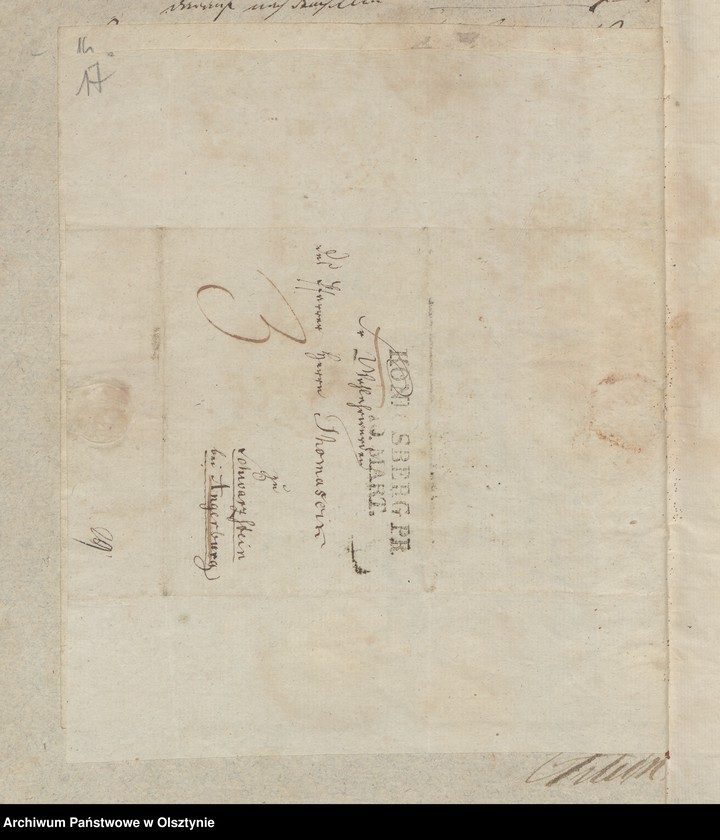 17
KÖNI SBERG PR
MART.
Sr Wohlehrwürden
des Pfarrer Herrn Thomascik
zu
Schwarzstein
bei Angerburg
3
Archiwum Państwowe w Olsztynie